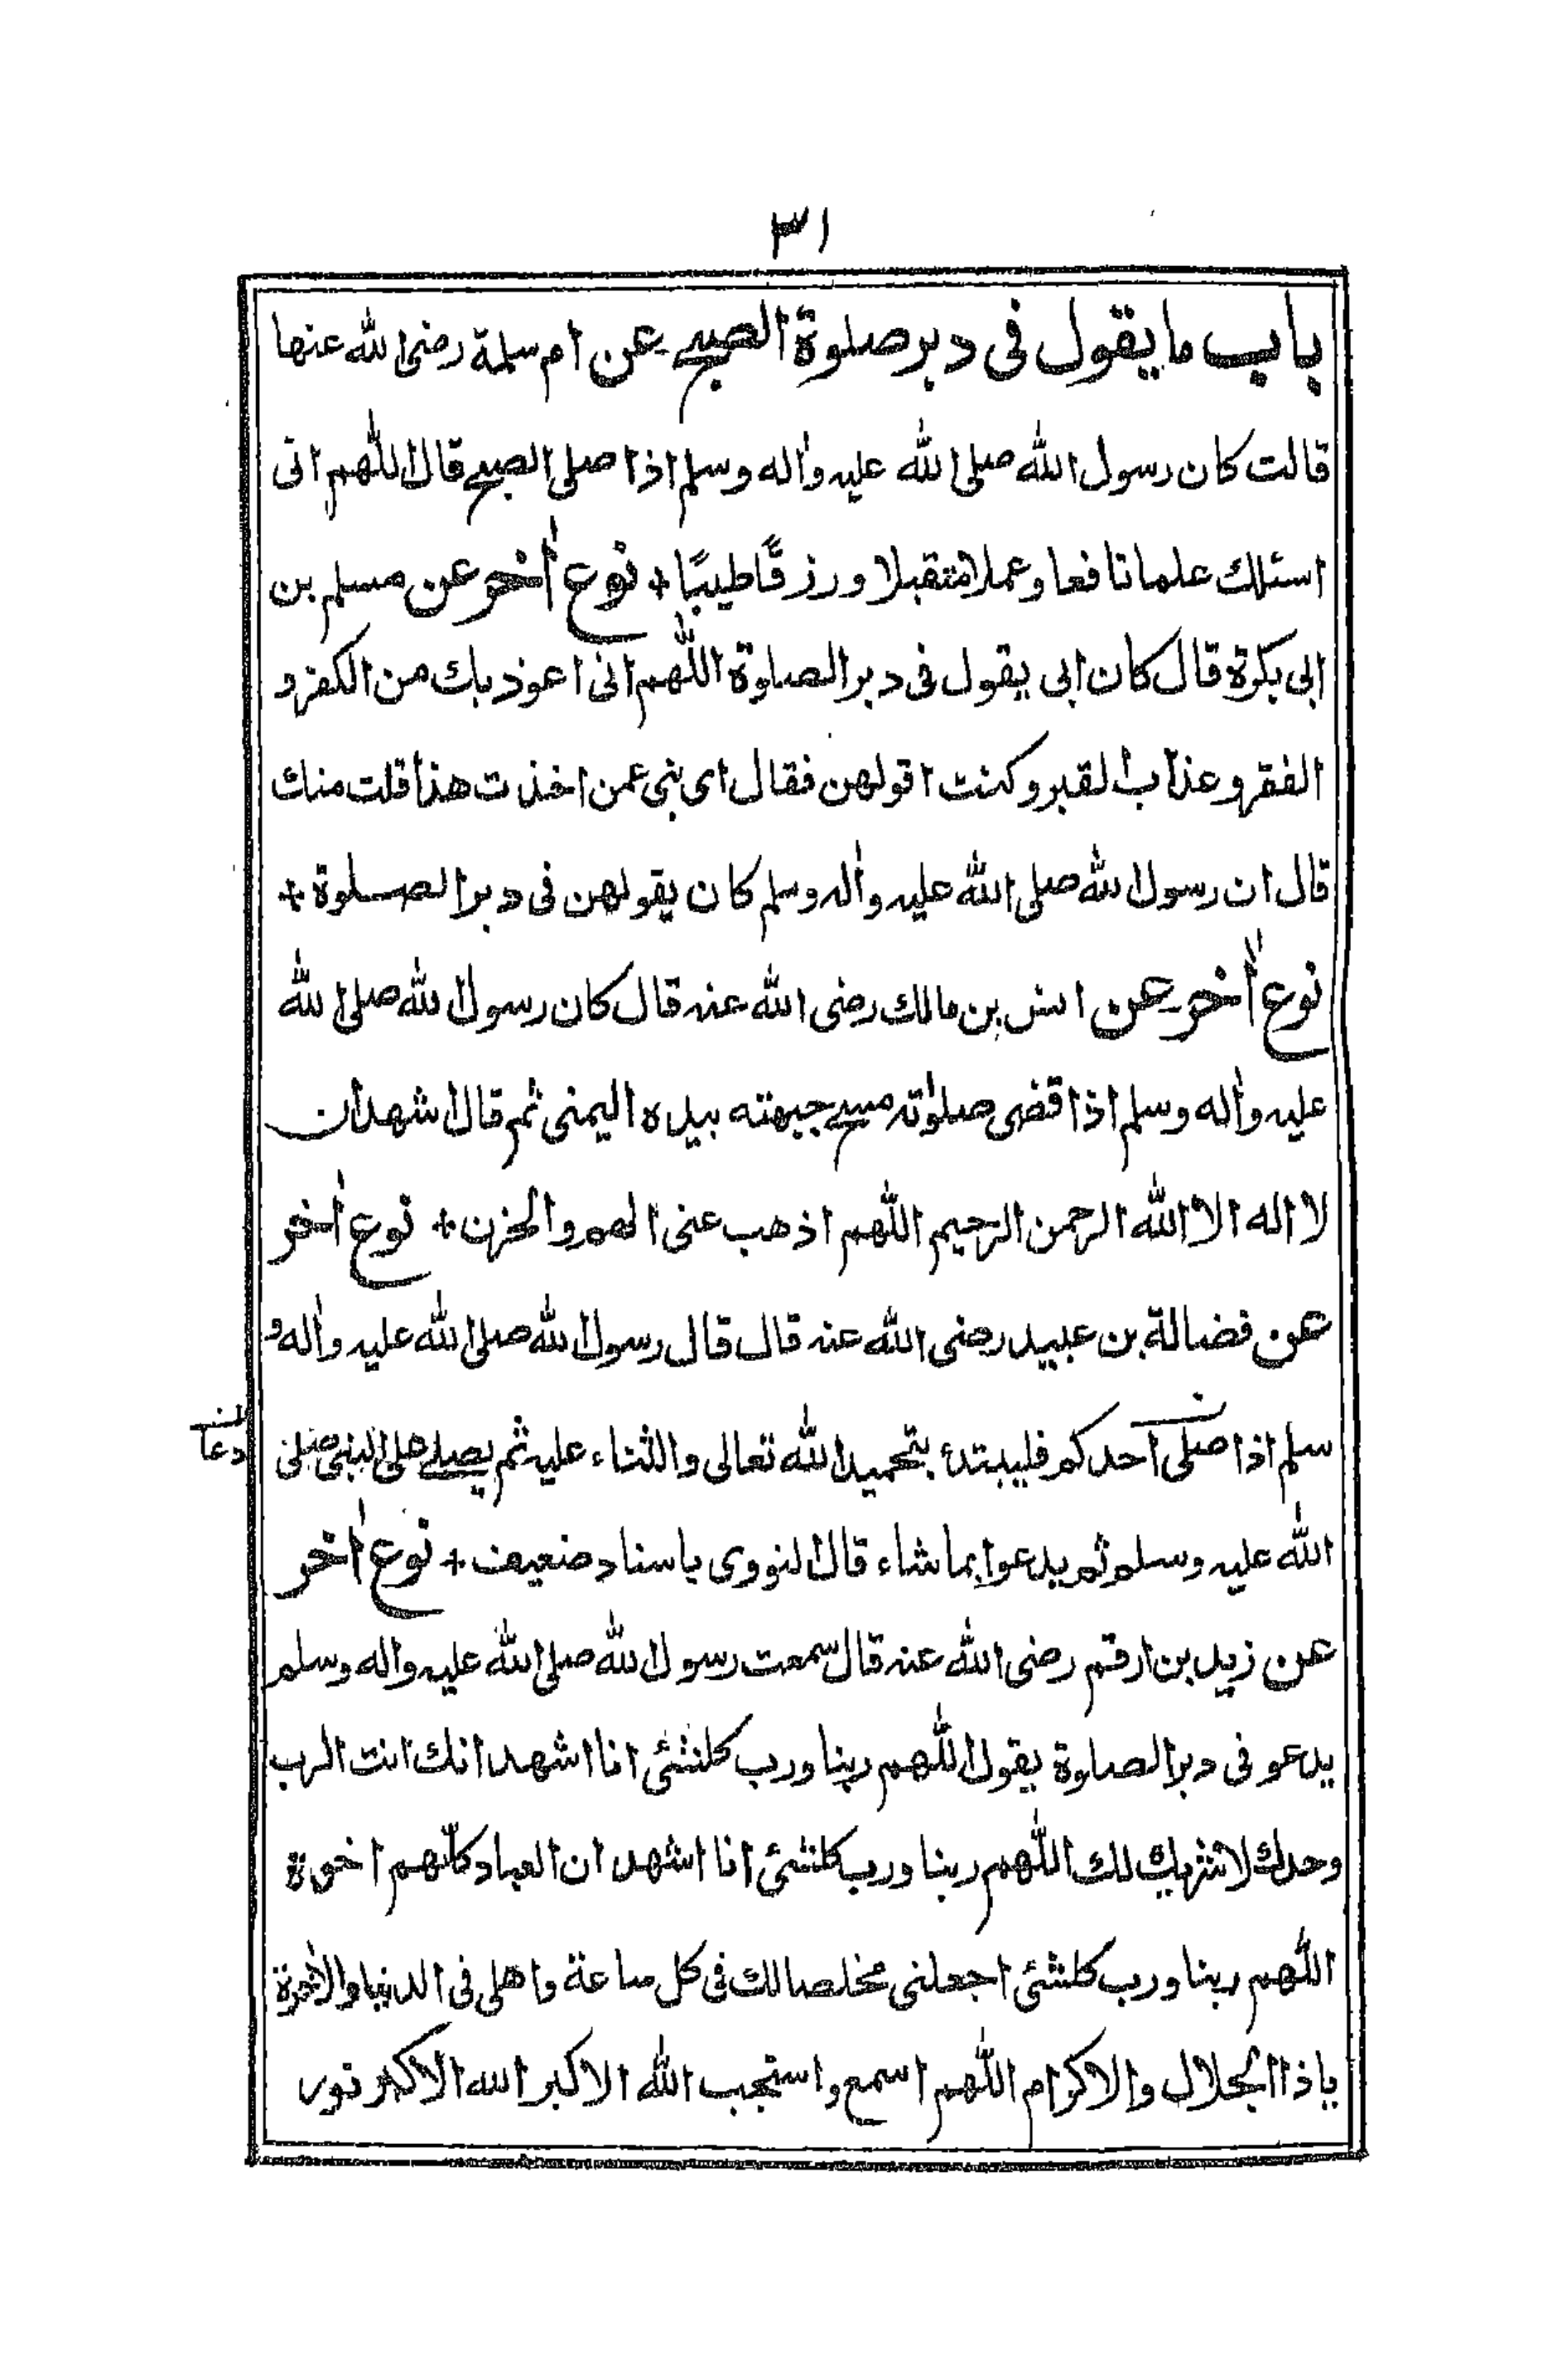 ٣١
باب ما يقول فى دبر صلوة الصبح عن ام سلمة رضى الله عنها
قالت كان رسول الله صلى الله عليه واٰله وسلم اذا صلى الصبح قال اللّٰهم انى
اسئلك علما نافعا وعملا متقبلا ورزقًا طيبًا + نوع اٰخر عن مسلم بن
ابى بكرة قال كان ابى يقول فى دبر الصلوة اللّٰهم انى اعوذ بك من الكفر و
الفقر وعذاب القبر وكنت اقولهن فقال اى بنى عمن اخذت هذا قلت منك
قال ان رسول الله صلى الله عليه واٰله وسلم كان يقولهن فى دبر الصلوة +
نوع اٰخر عن انس بن مالك رضى الله عنه قال كان رسول الله صلى الله
عليه واٰله وسلم اذا قضى صلوٰته مسح جبهته بيده اليمنى ثم قال اشهد ان
لا اله الا الله الرحمن الرحيم اللّٰهم اذهب عنى الهم والحزن + نوع اٰخر
عن فضالة بن عبيد رضى الله عنه قال قال رسول الله صلى الله عليه واٰله و
سلم اذا صلى احدكم فليبتدأ بتحميد الله تعالى والثناء عليه ثم يصلى على النبى صلى
دعا
الله عليه وسلم ثم يدعوا بما شاء قال النووى باسناد ضعيف + نوع اٰخر
عن زيد بن ارقم رضى الله عنه قال سمعت رسول الله صلى الله عليه واله وسلم
يدعو فى دبر الصلوة يقول اللّٰهم ربنا ورب كلشئى انا اشهد انك انت الرب
وحدك لا شريك لك اللّٰهم ربنا ورب كلشئى انا اشهد ان العباد كلّهم اخوة
اللّٰهم ربنا ورب كلشئى اجعلنى مخلصا لك فى كل ساعة واهلى فى الدنيا والاٰخرة
ياذا الجلال والاكرام اللّٰهم اسمع واستجب الله الاكبر الله الاكبر نور